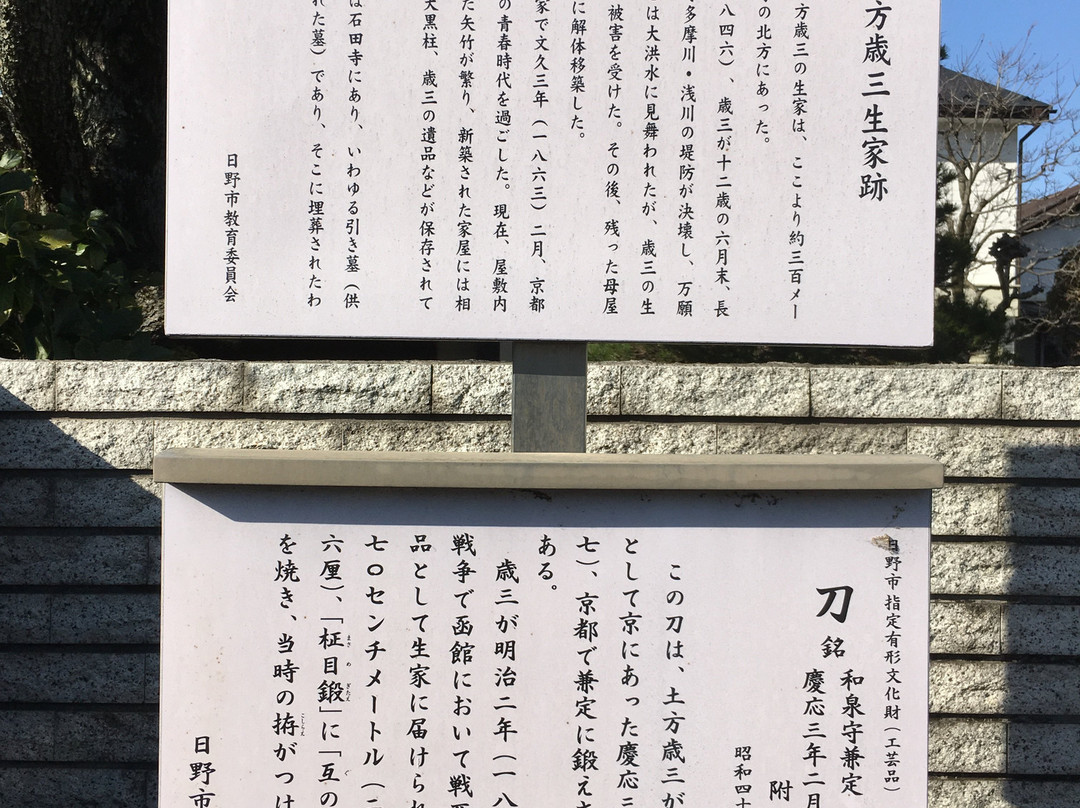 方歳三生家跡
方歳三の生家は、ここより約三百メー
の北方にあった。
八四六）、歳三が十二歳の六月末、長
多摩川・浅川の堤防が決壊し、万願
は大洪水に見舞われたが、歳三の生
被害を受けた。その後、残った母屋
に解体移築した。
家で文久三年（一八六三）二月、京都
の青春時代を過ごした。現在、屋敷内
た矢竹が繁り、新築された家屋には相
大黒柱、歳三の遺品などが保存されて
は石田寺にあり、いわゆる引き墓（供
れた墓）であり、そこに埋葬されたわ
日野市教育委員会
日野市指定有形文化財（工芸品）
刀 銘 和泉守兼定
慶応三年二月
附
昭和四十
この刀は、土方歳三が
として京にあった慶応三
七）、京都で兼定に鍛え
ある。
歳三が明治二年（一八
戦争で函館において戦
品として生家に届けられ
七〇センチメートル（二
六厘）、「柾目鍛」に「互の
を焼き、当時の拵がつけ
日野市